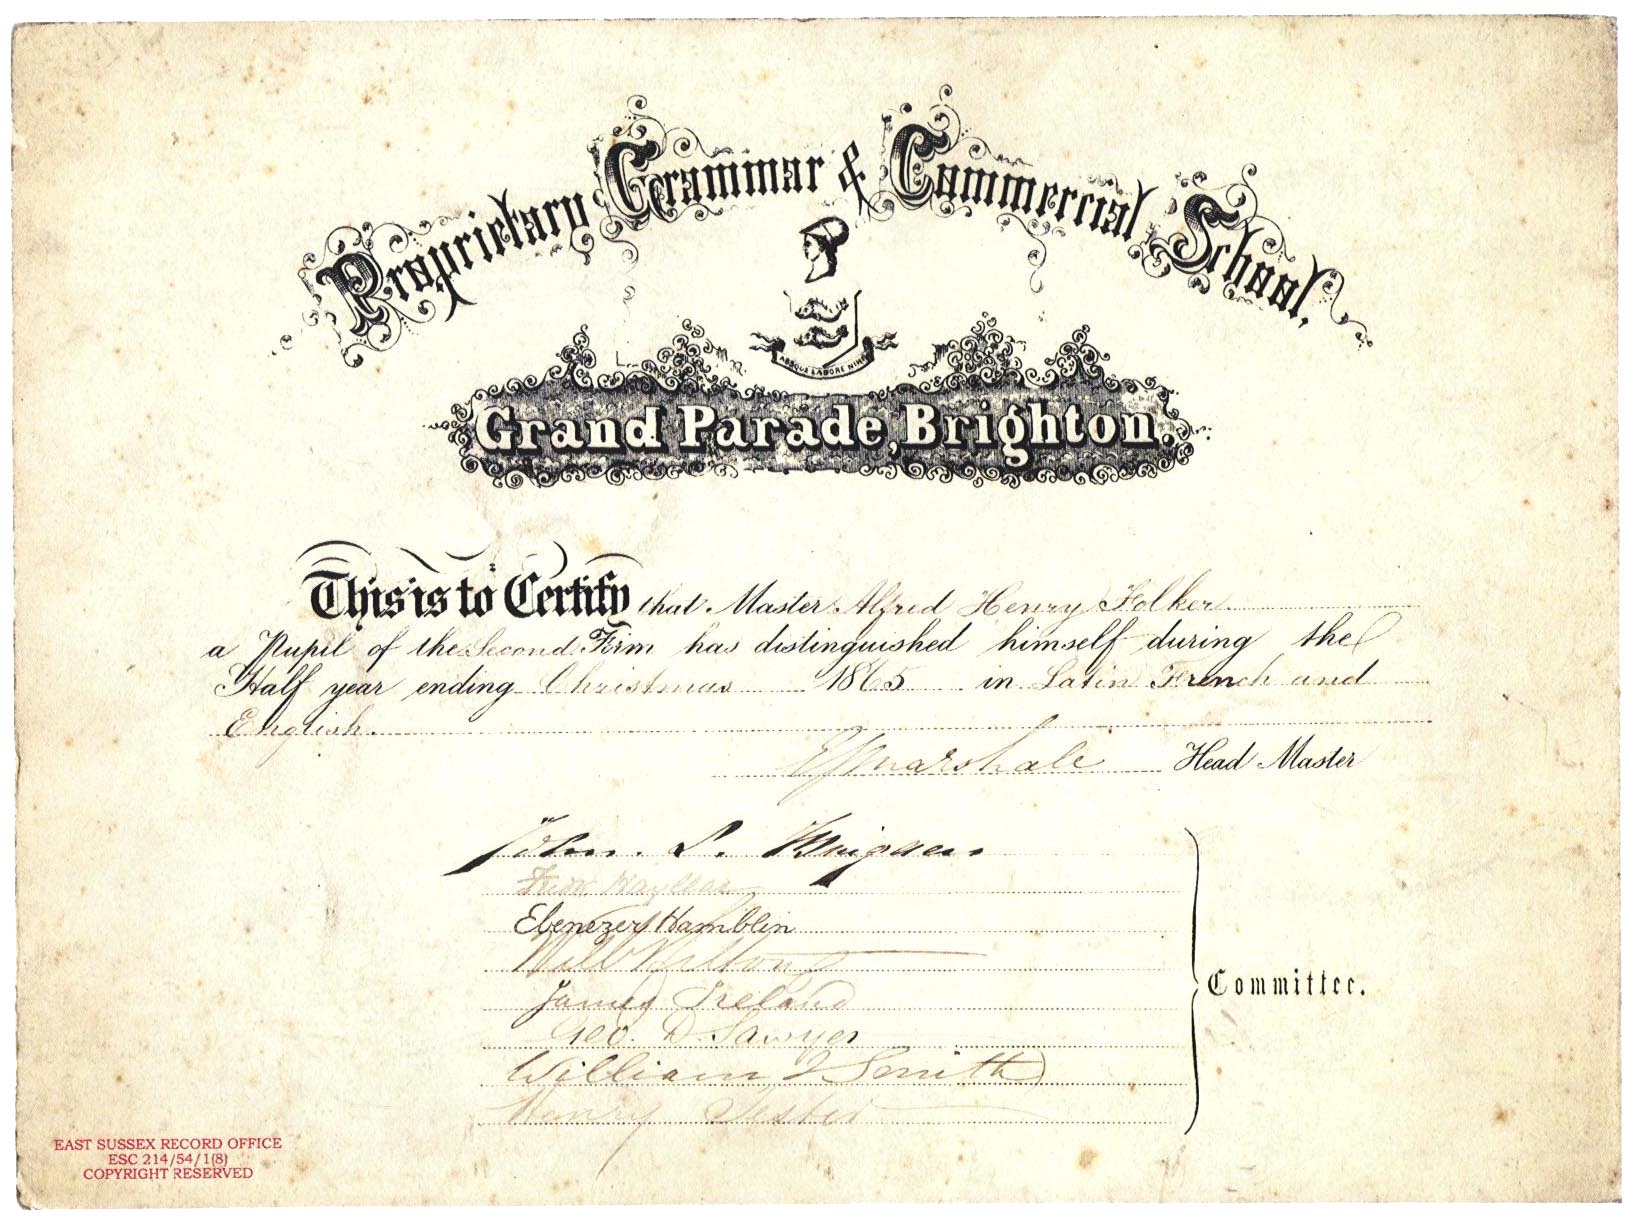 Proprietary Grammar & Commercial School,
ABSQUE LABORE NIHIL
Grand Parade, Brighton.
This is to Certify that Master Alfred Henry Folker
a Pupil of the Second Form has distinguished himself during the
Half year ending Christmas 1865 in Latin French and
English.
Marshall Head Master
John
Ebenezer Hamblin
James Ireland
Committee.
Geo. D. Sawyer
William J Smith
Henry
EAST SUSSEX RECORD OFFICE
ESC 214/54/1(8)
COPYRIGHT RESERVED